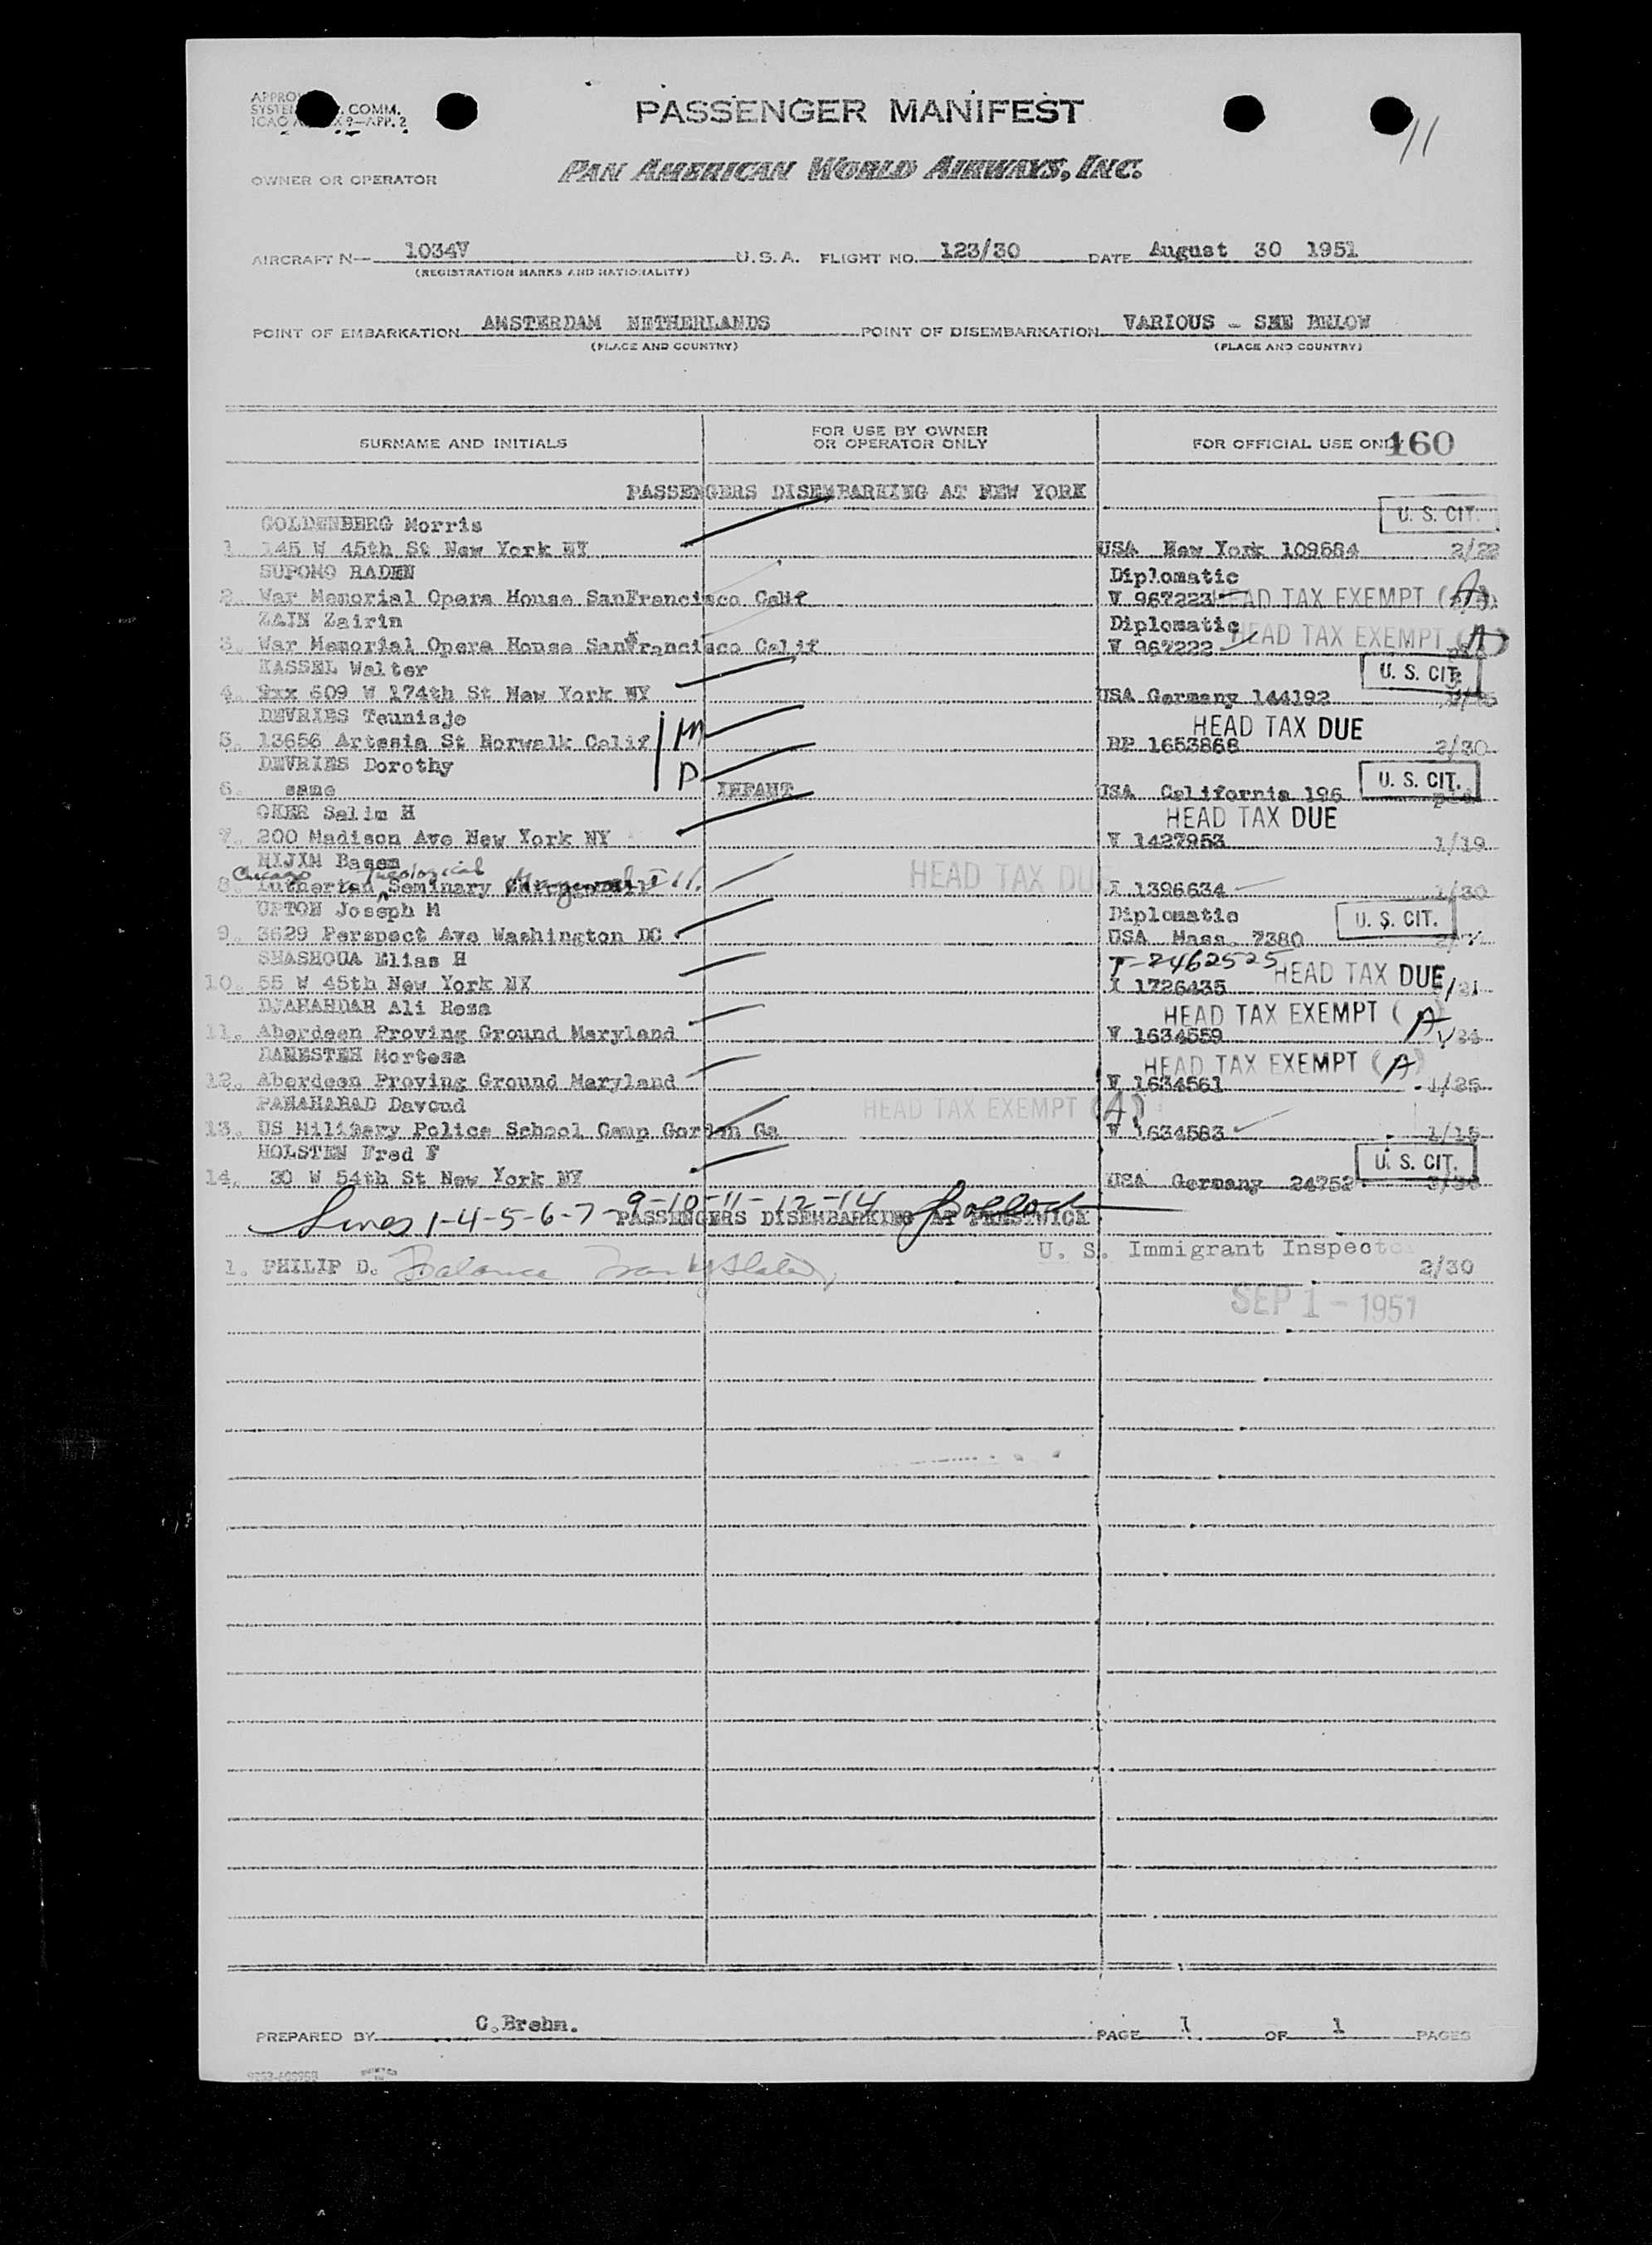 COMM.
PASSENGER MANIFEST
11
OWNER OR OPERATOR
PAN AMERICAN WORLD AIRWAYS, INC.
AIRCRAFT N— 1034V U.S.A. FLIGHT NO. 123/30 DATE August 30 1951
(REGISTRATION MARKS AND NATIONALITY)
POINT OF EMBARKATION AMSTERDAM NETHERLANDS POINT OF DISEMBARKATION VARIOUS - SEE BELOW
(PLACE AND COUNTRY) (PLACE AND COUNTRY)
SURNAME AND INITIALS FOR USE BY OWNER OR OPERATOR ONLY FOR OFFICIAL USE ONLY 160
PASSENGERS DISEMBARKING AT NEW YORK
GOLDENBERG Morris U. S. CIT.
1. 145 W 45th St New York NY USA New York 109684 2/22
SUPOMO RADEN Diplomatic
2. War Memorial Opera House SanFrancisco Calif V 967223 HEAD TAX EXEMPT (A)
ZAIN Zairin Diplomatic
3. War Memorial Opera House SanFrancisco Calif V 967222 HEAD TAX EXEMPT (A)
KASSEL Walter U. S. CIT.
4. 609 W 174th St New York NY USA Germany 144192
DEVRIES Teunisje HEAD TAX DUE
5. 13656 Artesia St Norwalk Calif M 1653868 2/30
DEVRIES Dorothy D U. S. CIT.
6. same INFANT USA California 196
OKER Salim H HEAD TAX DUE
7. 200 Madison Ave New York NY V 1427953 1/19
NIJIM Basem
Chicago Theological
8. Lutheran Seminary Ill. HEAD TAX DUE 1396634 1/30
UPTON Joseph M Diplomatic U. S. CIT.
9. 3629 Perspect Ave Washington DC USA Mass. 7380
SHASHOUA Elias H T-2462525 HEAD TAX DUE
10. 55 W 45th New York NY I 1726435
DJAHANDAR Ali Reza HEAD TAX EXEMPT (A)
11. Aberdeen Proving Ground Maryland V 1634559
DANESTEH Morteza HEAD TAX EXEMPT (A)
12. Aberdeen Proving Ground Maryland V 1634561 1/25
PANAHABAD Davoud HEAD TAX EXEMPT (A)
13. US Military Police School Camp Gordon Ga V 1634583 1/15
HOLSTEN Fred F U. S. CIT.
14. 30 W 54th St New York NY USA Germany 24752
Lines 1-4-5-6-7-9-10-11-12-14
PASSENGERS DISEMBARKING AT PRESTWICK
U. S. Immigrant Inspector
1. PHILIP D. Balance 2/30
SEP 1 - 1951
PREPARED BY C.Brehm. PAGE 1 OF 1 PAGES